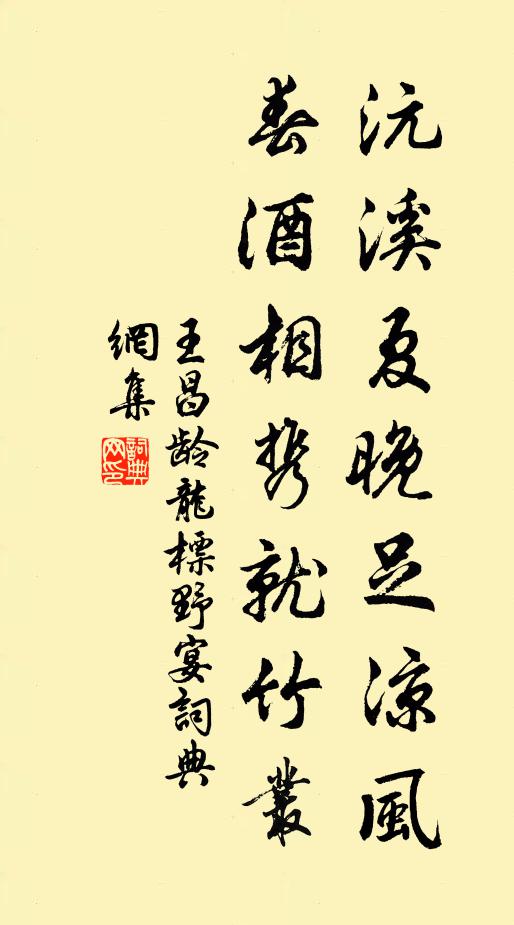 沅溪夏晚足涼風
春酒相携就竹叢
王昌龄龍標野宴詞典
網集
詞典
网印